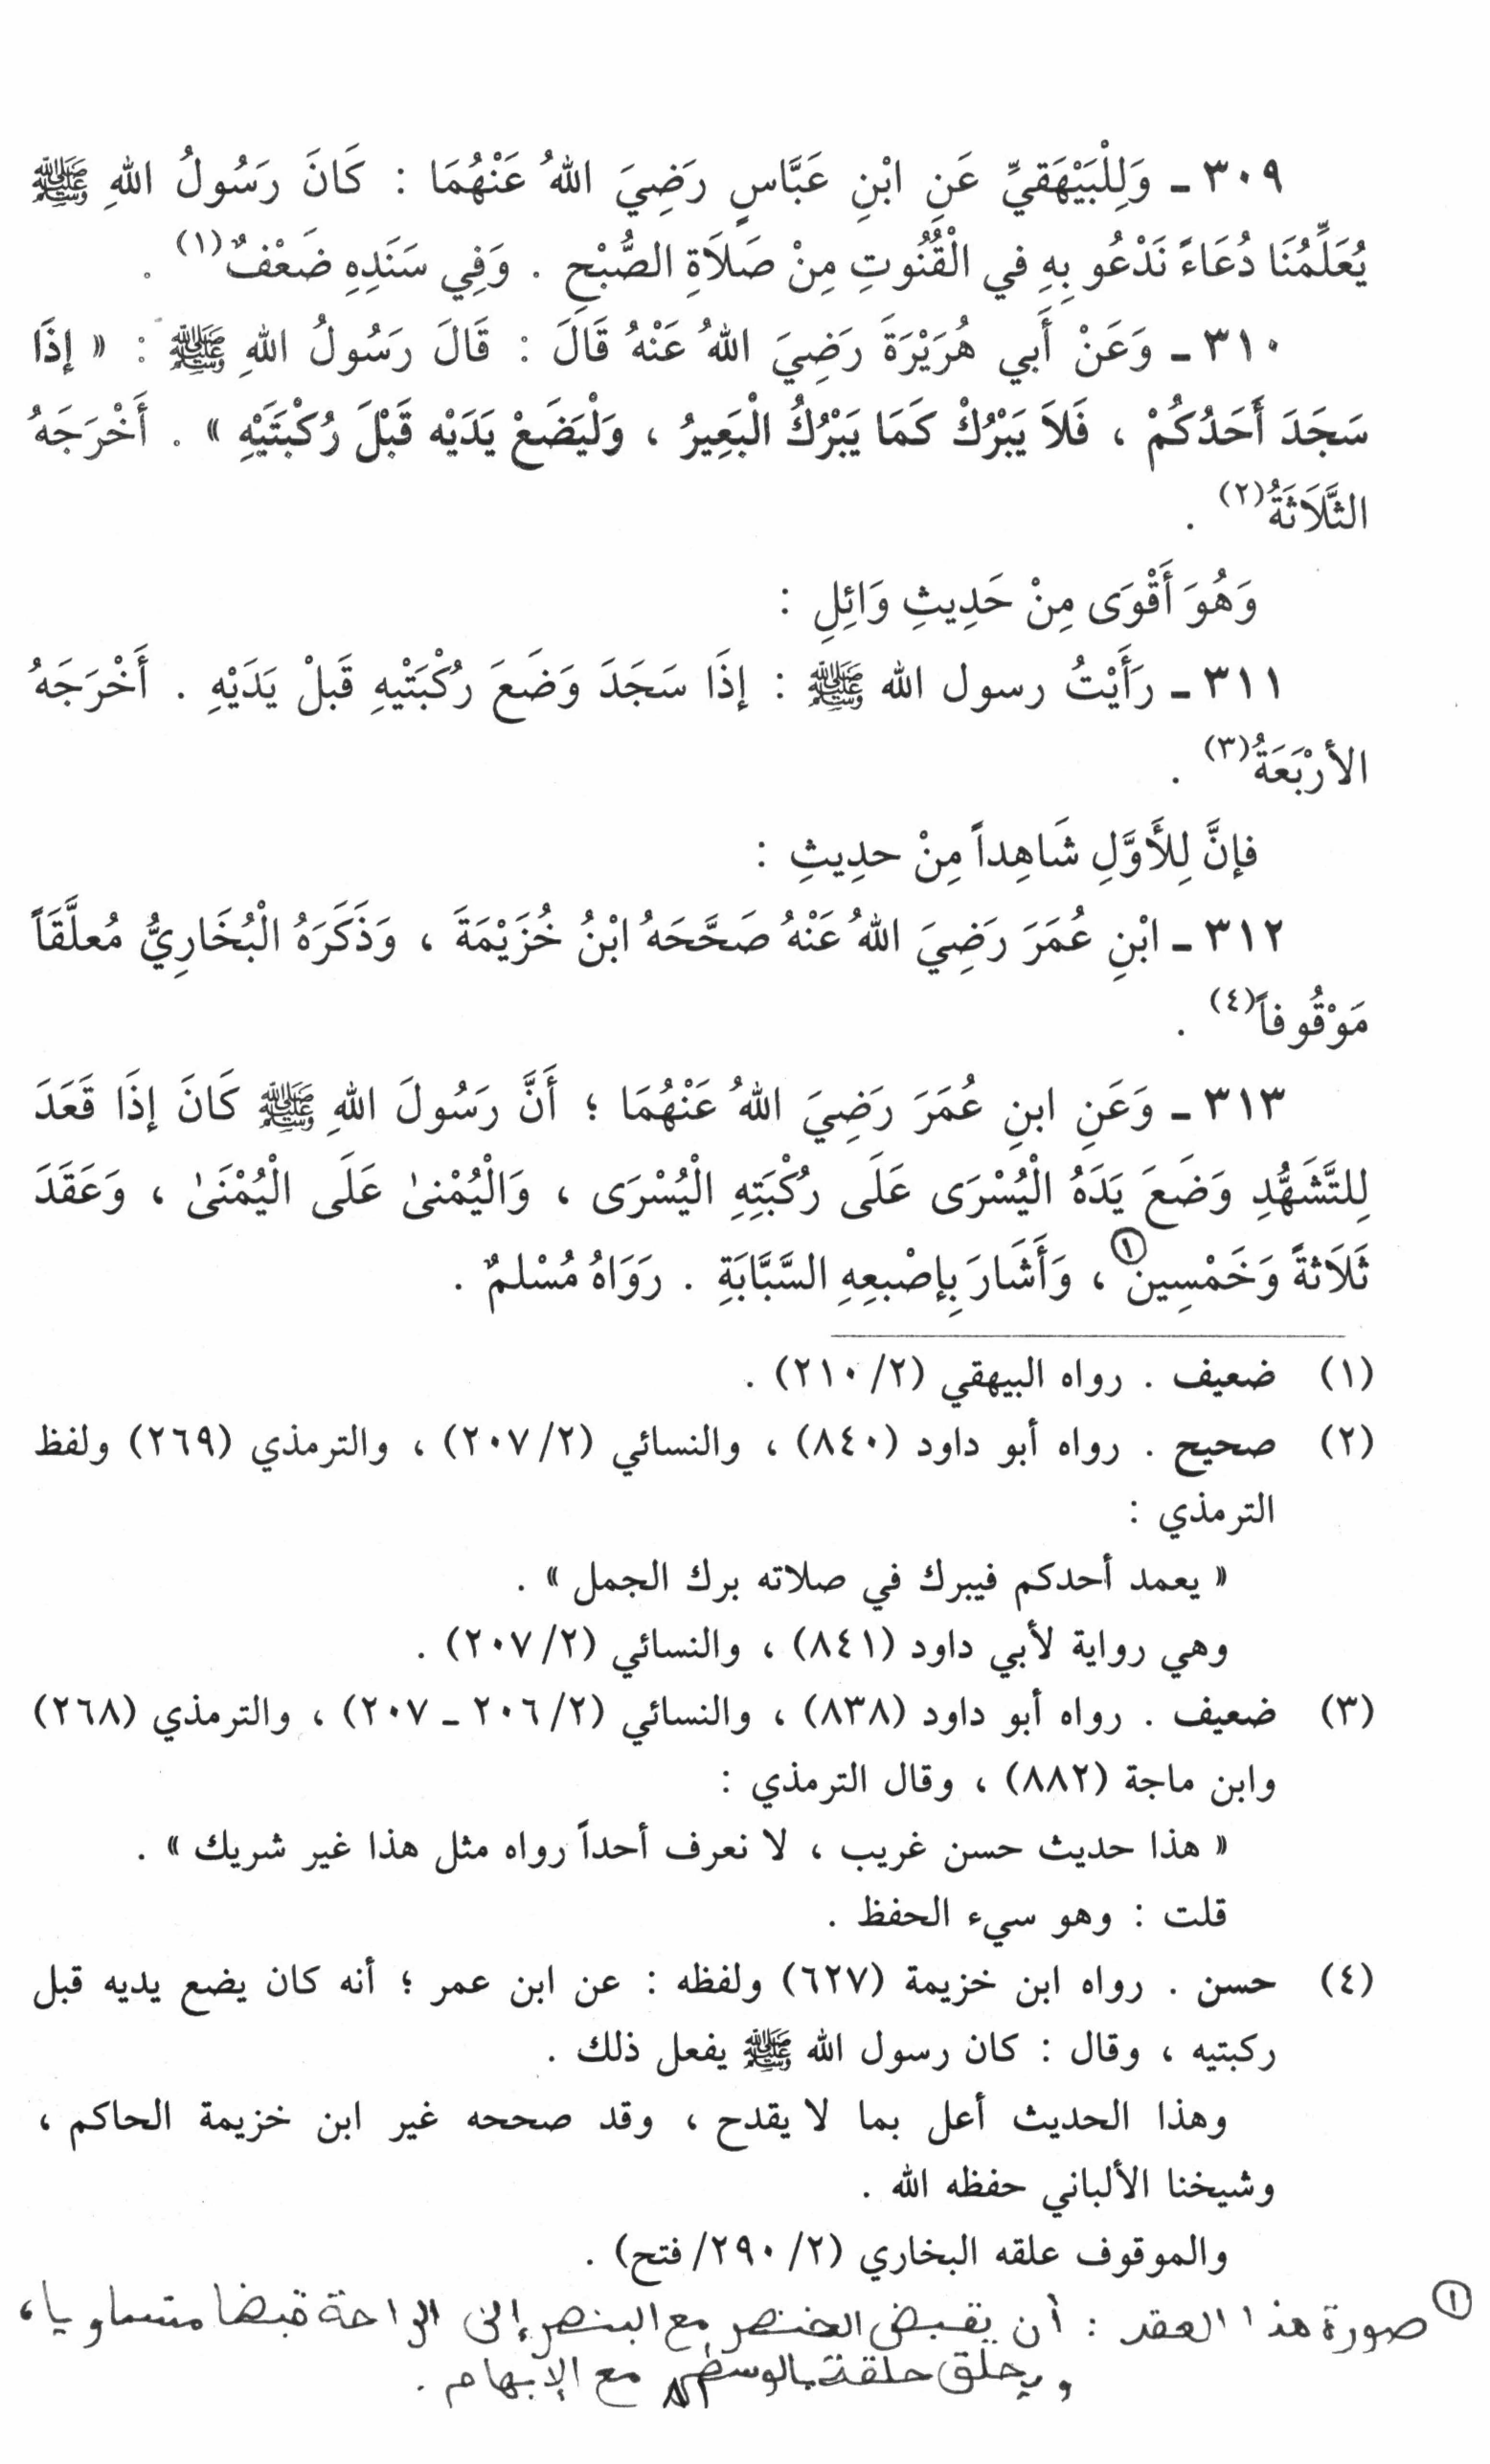 ٣٠٩ ـ وَلِلْبَيْهَقيِّ عَنِ ابْنِ عَبَّاسٍ رَضِيَ اللهُ عَنْهُمَا : كَانَ رَسُولُ اللهِ ﷺ
يُعَلِّمُنَا دُعَاءً نَدْعُو بِهِ في الْقُنُوتِ مِنْ صَلَاةِ الصُّبْحِ . وَفِي سَنَدِهِ ضَعْفٌ(١) .
٣١٠ ـ وَعَنْ أَبي هُرَيْرَةَ رَضِيَ اللهُ عَنْهُ قَالَ : قَالَ رَسُولُ اللهِ ﷺ : « إذَا
سَجَدَ أَحَدُكُمْ ، فَلاَ يَبْرُكْ كَمَا يَبْرُكُ الْبَعِيرُ ، وَلْيَضَعْ يَدَيْه قَبْلَ رُكْبَتَيْهِ » . أَخْرَجَهُ
الثَّلَاثَةُ(٢) .
وَهُوَ أَقْوَى مِنْ حَدِيثِ وَائِلِ :
٣١١ ـ رَأَيْتُ رسول الله ﷺ : إذَا سَجَدَ وَضَعَ رُكْبَتْيهِ قَبلْ يَدَيْهِ . أَخْرَجَهُ
الأرْبَعَةُ(٣) .
فإنَّ لِلأَوَّلِ شَاهِداً مِنْ حدِيثِ :
٣١٢ ـ ابْنِ عُمَرَ رَضِيَ اللهُ عَنْهُ صَحَّحَهُ ابْنُ خُزَيْمَةَ ، وَذَكَرَهُ الْبُخَارِيُّ مُعلَّقَاً
مَوْقُوفاً(٤) .
٣١٣ ـ وَعَنِ ابنِ عُمَرَ رَضِيَ اللهُ عَنْهُمَا ؛ أَنَّ رَسُولَ اللهِ ﷺ كَانَ إذَا قَعَدَ
لِلتَّشَهُّدِ وَضَعَ يَدَهُ الْيُسْرَى عَلَى رُكْبَتِهِ الْيُسْرَى ، وَالْيُمْنىٰ عَلَى الْيُمْنَىٰ ، وَعَقَدَ
ثَلَاثةً وَخَمْسِينَ ① ، وَأَشَارَ بِإصْبعِهِ السَّبَّابَةِ . رَوَاهُ مُسْلمٌ .
(١) ضعيف . رواه البيهقي (٢/ ٢١٠) .
(٢) صحيح . رواه أبو داود (٨٤٠) ، والنسائي (٢/ ٢٠٧) ، والترمذي (٢٦٩) ولفظ
الترمذي :
« يعمد أحدكم فيبرك في صلاته برك الجمل » .
وهي رواية لأبي داود (٨٤١) ، والنسائي (٢/ ٢٠٧) .
(٣) ضعيف . رواه أبو داود (٨٣٨) ، والنسائي (٢/ ٢٠٦ ـ ٢٠٧) ، والترمذي (٢٦٨)
وابن ماجة (٨٨٢) ، وقال الترمذي :
« هذا حديث حسن غريب ، لا نعرف أحداً رواه مثل هذا غير شريك » .
قلت : وهو سيء الحفظ .
(٤) حسن . رواه ابن خزيمة (٦٢٧) ولفظه : عن ابن عمر ؛ أنه كان يضع يديه قبل
ركبتيه ، وقال : كان رسول الله ﷺ يفعل ذلك .
وهذا الحديث أعل بما لا يقدح ، وقد صححه غير ابن خزيمة الحاكم ،
وشيخنا الألباني حفظه الله .
والموقوف علقه البخاري (٢/ ٢٩٠/ فتح) .
① صورة هذا العقد : أن يقبض الخنصر مع البنصر إلى الراحة قبضا متساويا ،
ويحلّق حلقة بالوسطى مع الإبهام .